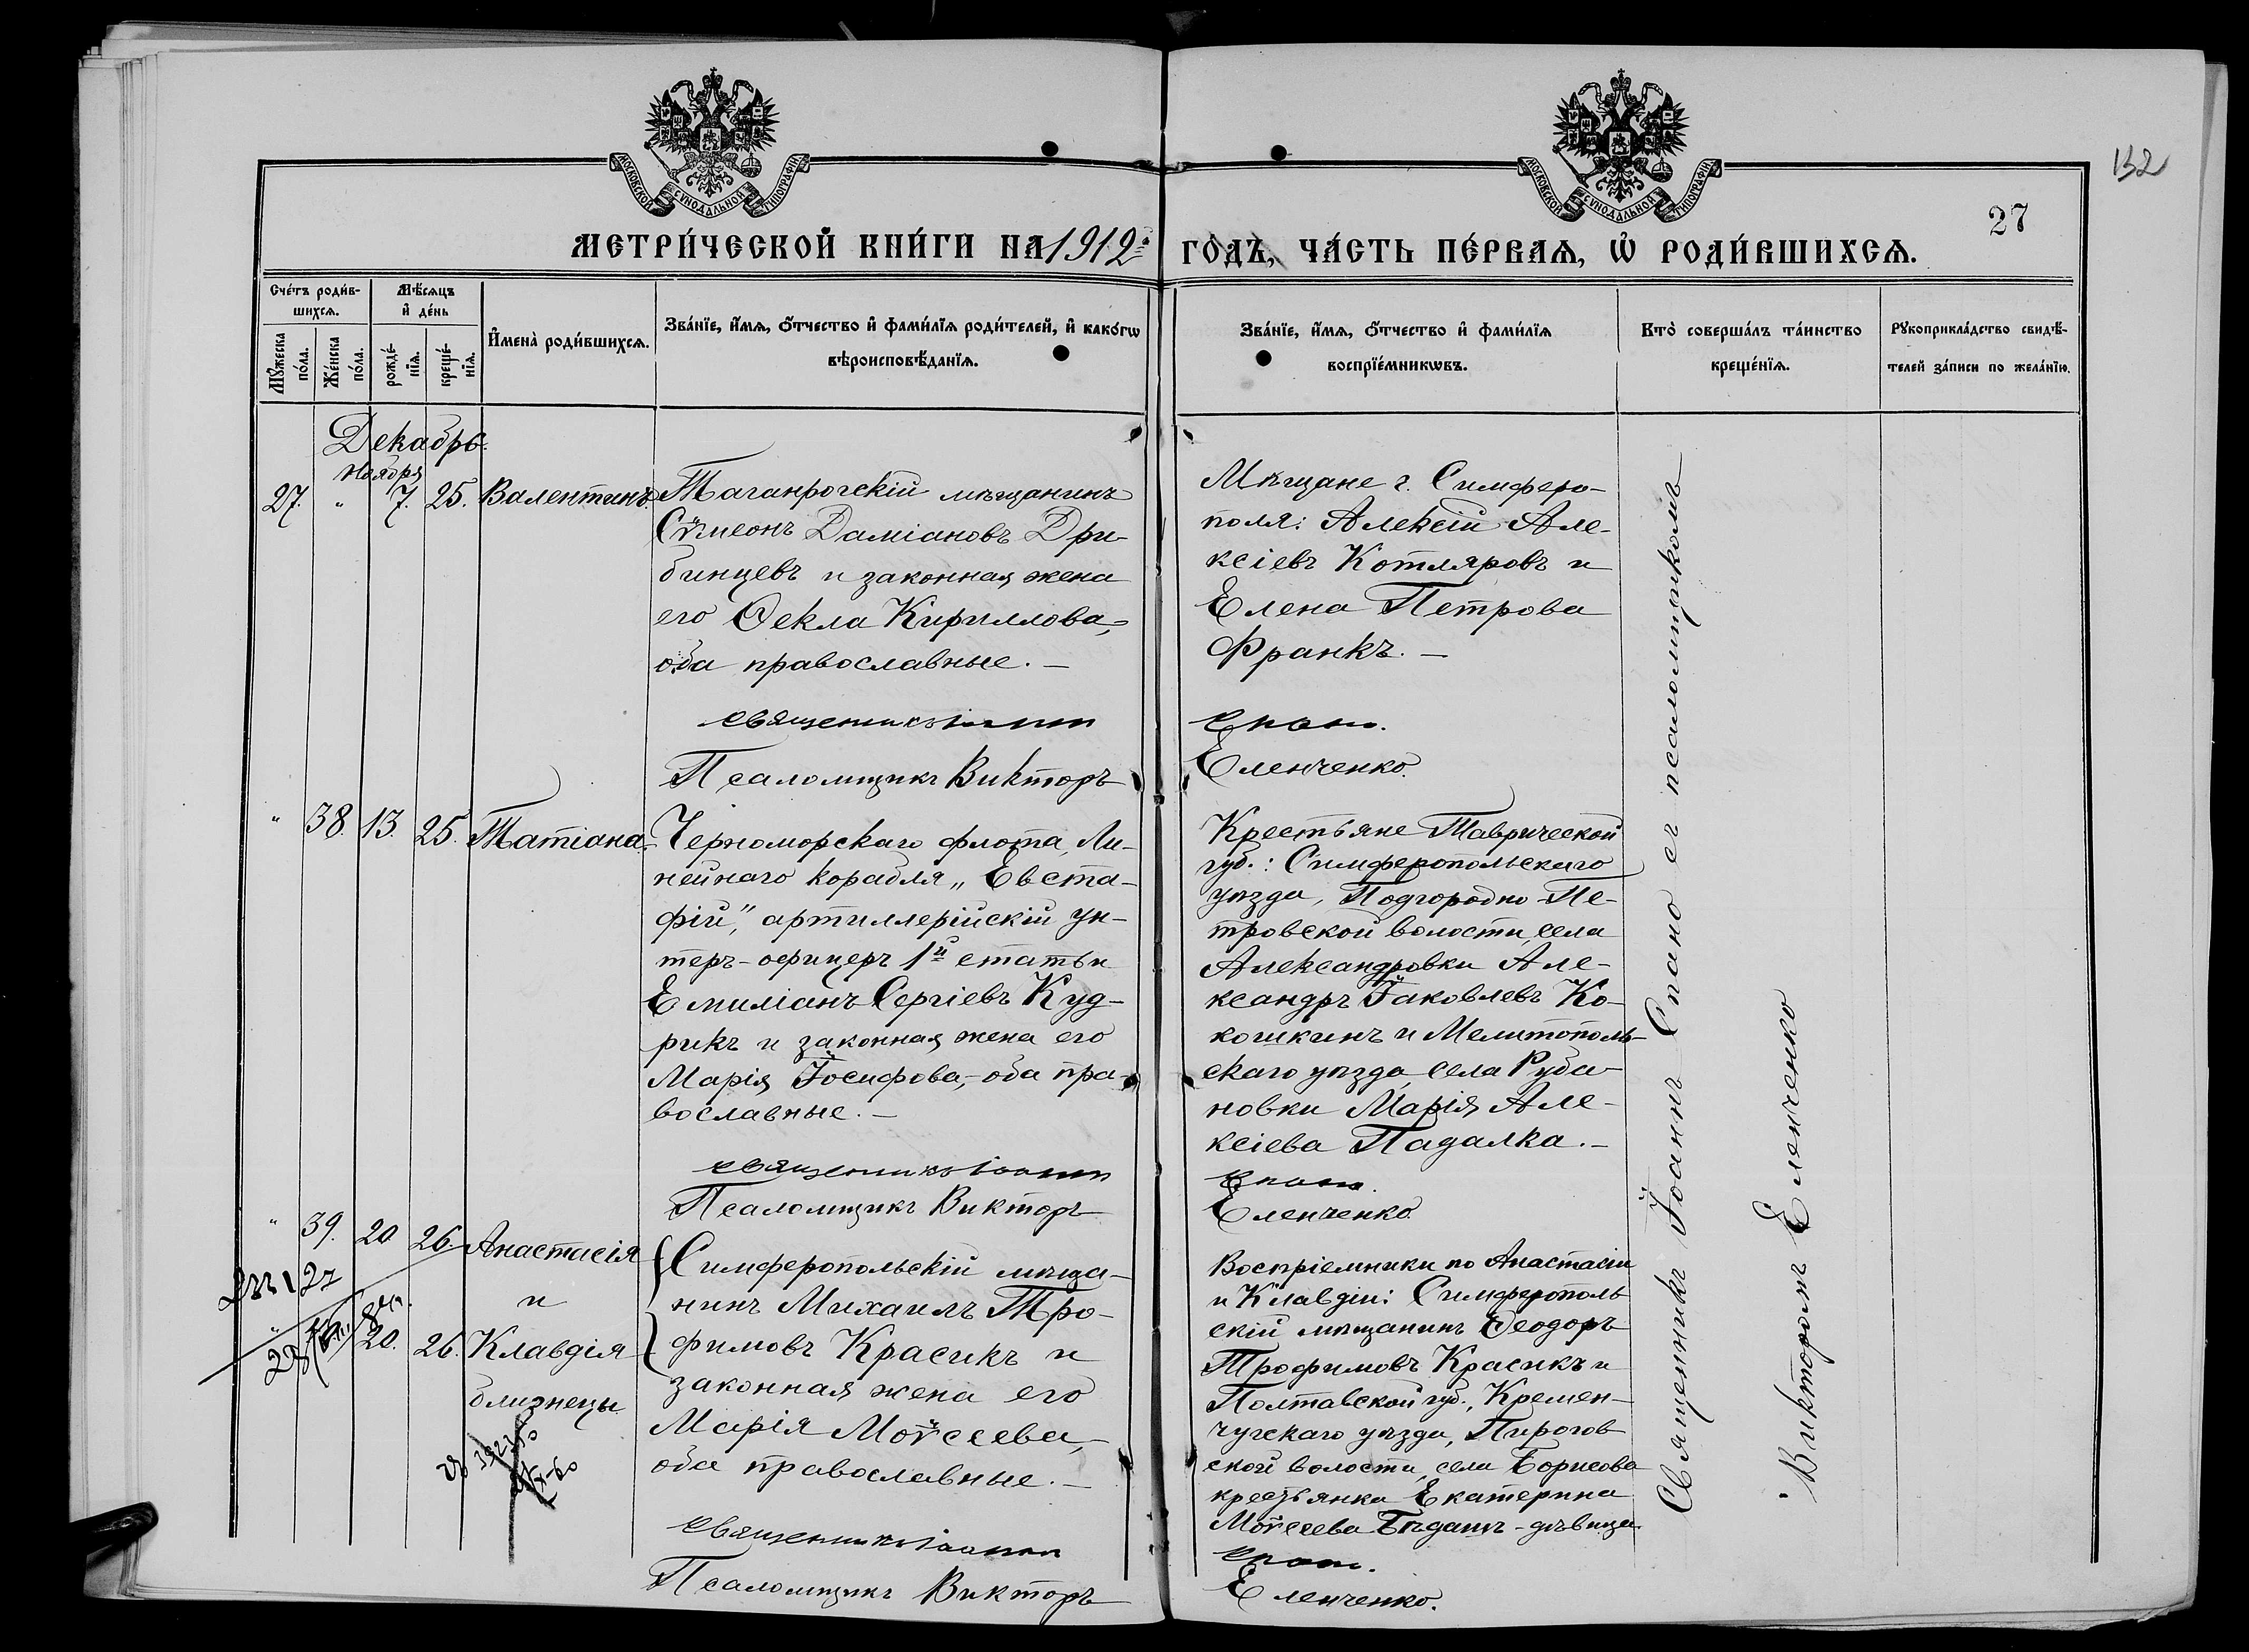 МОСКОВСКОЙ СѴНОДАЛЬНОЙ ТИПОГРАФІИ
МОСКОВСКОЙ СѴНОДАЛЬНОЙ ТИПОГРАФІИ
132
27
МЕТРИ́ЧЕСКОЙ КНИ́ГИ НА 1912й
ГО́ДЪ, ЧА́СТЬ ПЕ́РВАѦ, Ѡ҆ РОДИ́ВШИХСѦ.
Сче́тъ роди́в-
шихсѧ.
Мꙋ́жеска
по́ла.
Же́нска
по́ла.
Мѣ́сѧцъ
и҆ де́нь
рожде́-
нїѧ.
креще́-
нїѧ.
И҆мена̀ роди́вшихсѧ.
Зва́нїе, и҆́мѧ, ѻ҆́тчество и҆ фами́лїѧ роди́телей, и҆ како́гѡ
вѣроисповѣ́данїѧ.
Зва́нїе, и҆́мѧ, ѻ҆́тчество и҆ фами́лїѧ
воспрїе́мникѡвъ.
Кто̀ соверша́лъ та́инство
креще́нїѧ.
Рꙋкоприкла́дство свидѣ́-
телей за́писи по жела́нїю.
Декабрь.
Ноября
27. " 7. 25. Валентинъ.
Таганрогскій мѣщанинъ
Сѵмеонъ Даміановъ Дри-
бинцевъ и законная жена
его Ѳекла Кириллова,-
оба православные. —
Священникъ Іоаннъ
Псаломщикъ Викторъ
Мѣщане г. Симферо-
поля: Алексій Але-
ксіевъ Котляровъ и
Елена Петрова
Франкъ. —
Спано.
Еленченко.
" 38. 13. 25. Татіана.
Черноморскаго флота, Ли-
нейнаго корабля „Евста-
фій", артиллерійскій ун-
теръ-офицеръ 1й статьи
Емиліанъ Сергіевъ Куд-
рикъ и законная жена его
Марія Іосифова,- оба пра-
вославные. —
Священникъ Іоаннъ
Псаломщикъ Викторъ
Крестьяне Таврической
губ.: Симферопольскаго
уѣзда, Подгородно-Пе-
тровской волости, села
Александровки Але-
ксандръ Іаковлевъ Ко-
кошкинъ и Мелитополь-
скаго уѣзда села Руба-
новки Марія Але-
ксіева Падалка. —
Спано.
Еленченко.
" 39. 20. 26. Анастасія
и
20. 26. Клавдія
близнецы
Симферопольскій мѣща-
нинъ Михаилъ Тро-
фимовъ Красикъ и
законная жена его
Марія Моѵсеева,-
оба православные. —
Священникъ Іоаннъ
Псаломщикъ Викторъ
Воспріемники по Анастасіи
и Клавдіи: Симферополь
скій мѣщанинъ Ѳеодоръ
Трофимовъ Красикъ и
Полтавской губ., Кремен-
чугскаго уѣзда, Пирогов
ской волости, села Борисова
крестьянка Екатерина
Моѵсеева - дѣвица.
Спано.
Еленченко.
Священникъ Іоаннъ Спано съ псаломщикомъ
Викторомъ Еленченко